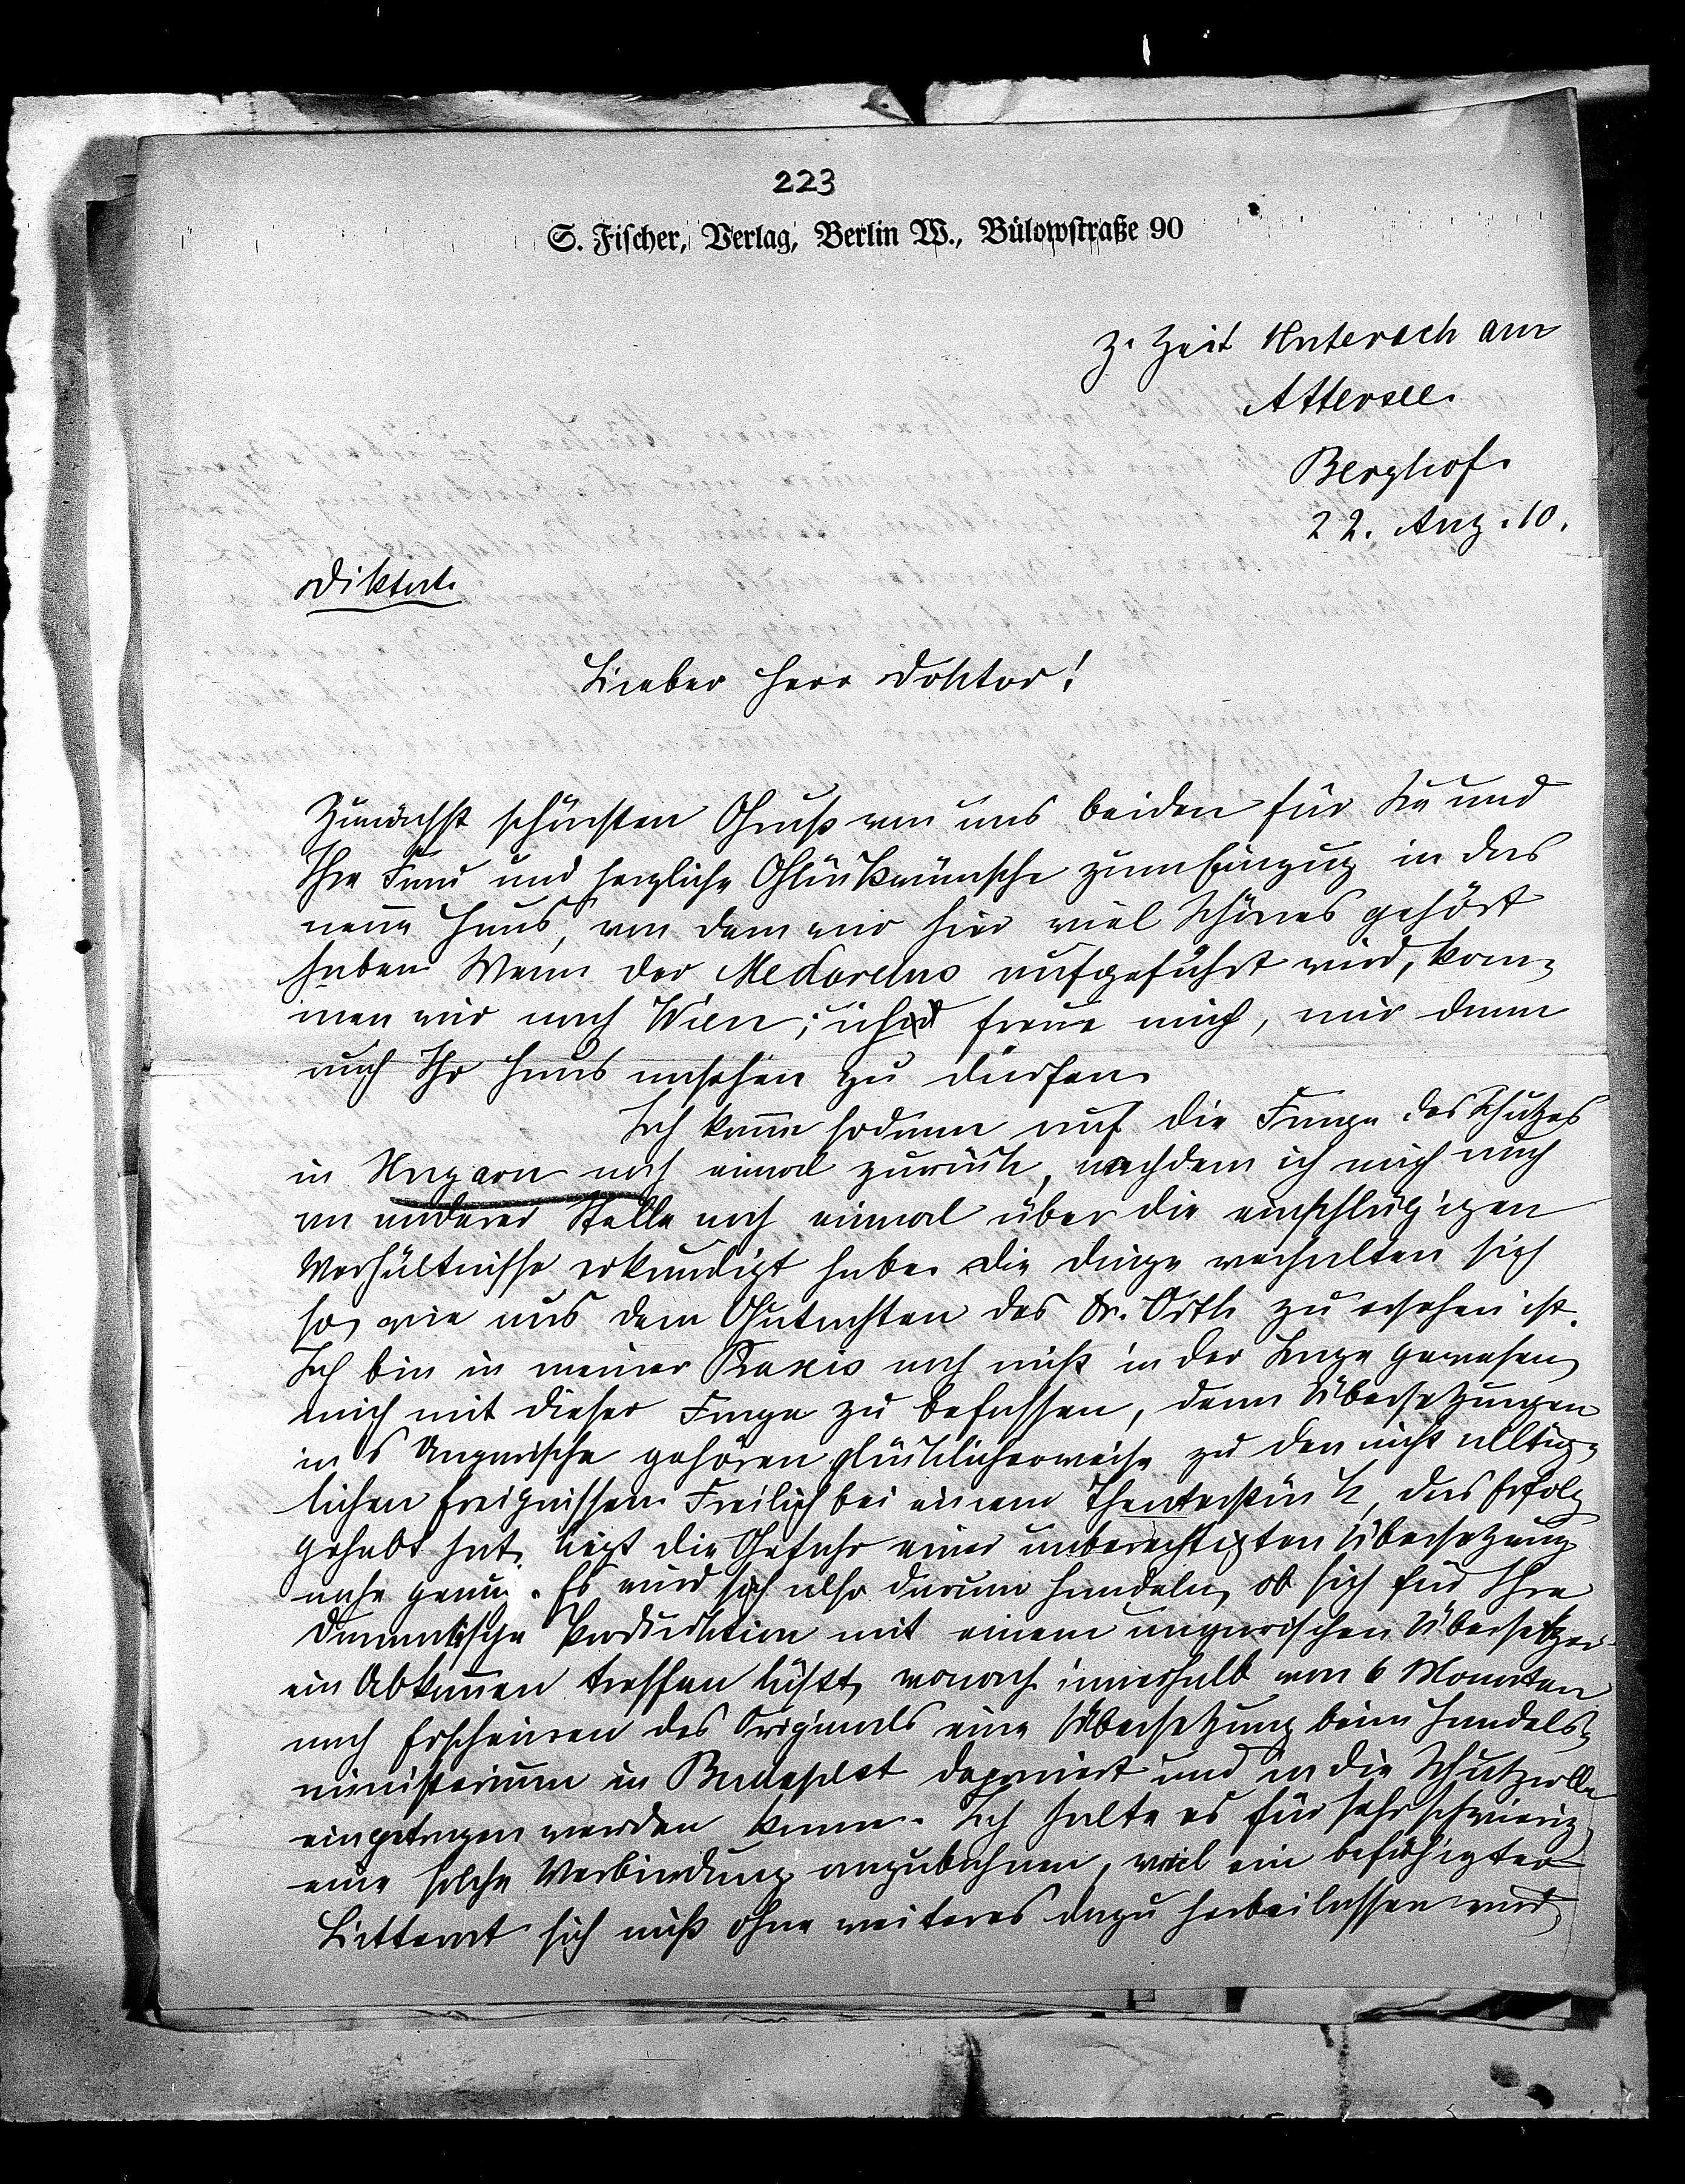 223
S. Fischer, Verlag, Berlin W., Bülowstraße 90
z. Zeit Unterach am
Attersee.
Berghof.
22. Aug. 10.
Diktat.
Lieber Herr Doktor!
Zunächst schönsten Gruß von uns beiden für Sie und
Ihre Frau und herzliche Glückwünsche zum Einzug in das
neue Haus, von dem wir hier viel Schönes gehört
haben. Wenn der Medardus aufgeführt wird, kom-
men wir nach Wien; ich freue mich, mir dann
auch Ihr Haus ansehen zu dürfen.
Ich komme sodann auf die Frage des Schutzes
in Ungarn noch einmal zurück, nachdem ich mich auch
an anderer Stelle noch einmal über die einschlägigen
Verhältnisse erkundigt habe. Die Dinge verhalten sich
so, wie aus dem Gutachten des Dr. Orth zu ersehen ist.
Ich bin in meiner Praxis noch nicht in der Lage gewesen,
mich mit dieser Frage zu befassen, denn Übersetzungen
ins Ungarische gehören glücklicherweise zu den nicht alltäg-
lichen Ereignissen. Freilich bei einem Theaterstück, das Erfolg
gehabt hat, liegt die Gefahr einer unberechtigten Übersetzung
nahe genug. Es wird sich also darum handeln, ob sich für Ihre
dramatische Produktion mit einem ungarischen Übersetzer
ein Abkommen treffen läßt, wonach innerhalb von 6 Monaten
nach Erscheinen des Originals eine Übersetzung beim Handels-
ministerium in Budapest deponiert und in die Schutzrolle
eingetragen werden kann. Ich halte es für sehr schwierig,
eine solche Verbindung anzubahnen, weil ein befähigter
Litterat sich nicht ohne weiteres dazu herbeilassen wird,